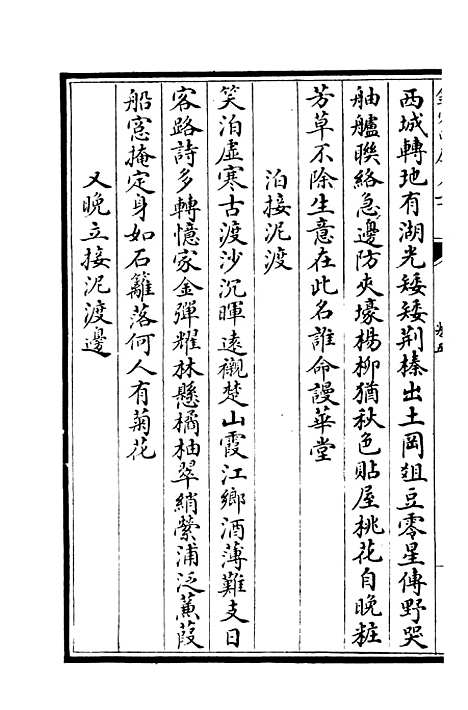 西城轉地有湖光矮矮荆榛出土岡俎豆零星傳野哭
舳艫聯絡急邊防夾壕楊柳猶秋色貼屋桃花自晚粧
芳草不除生意在此名誰命謾華堂
泊接泥渡
笑泊虛寒古渡沙沉暉遠襯楚山霞江鄉酒薄難支日
客路詩多轉憶家金彈耀林懸橘柚翠綃縈浦泛蒹葭
船窓掩定身如石籬落何人有菊花
又晚立接泥渡邊